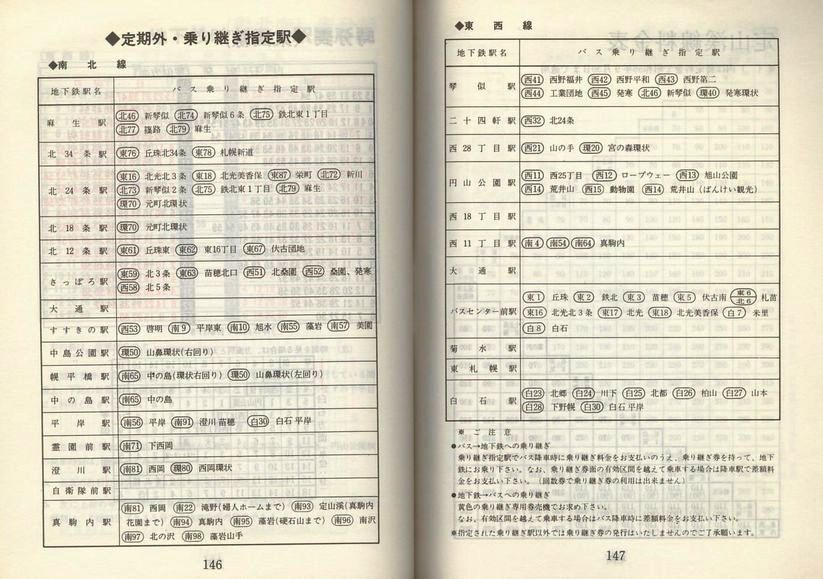 ◆定期外・乗り継ぎ指定駅◆
◆南北線
地下鉄駅名 バス乗り継ぎ指定駅
麻生駅 北46 新琴似 北74 新琴似6条 北75 鉄北東1丁目
北77 篠路 北79 麻生
北34条駅 東76 丘珠北34条 東78 札幌新道
北24条駅 東16 北光北3条 東18 北光美香保 東87 栄町 北72 新川
北73 新琴似2条 北75 鉄北東1丁目 北79 麻生
環70 元町北環状
北18条駅 環70 元町北環状
北12条駅 東61 丘珠東 東62 東16丁目 東67 伏古団地
さっぽろ駅 東59 北3条 東63 苗穂北口 西51 北桑園 西52 桑園、発寒
西58 北5条
大通駅
すすきの駅 西53 啓明 南9 平岸東 南10 旭水 南55 藻岩 南57 美園
中島公園駅 環50 山鼻環状(右回り)
幌平橋駅 南65 中の島(環状右回り) 環50 山鼻環状(左回り)
中の島駅 南65 中の島
平岸駅 南56 平岸 南91 澄川苗穂 白30 白石平岸
霊園前駅 南71 下西岡
澄川駅 南81 西岡 環80 西岡環状
自衛隊前駅
真駒内駅 南81 西岡 南22 滝野(婦人ホームまで) 南93 定山渓(真駒内
花園まで) 南94 真駒内 南95 藻岩(硬石山まで) 南96 南沢
南97 北の沢 南98 藻岩山手
146
◆東西線
地下鉄駅名 バス乗り継ぎ指定駅
琴似駅 西41 西野福井 西42 西野平和 西43 西野第二
西44 工業団地 西45 発寒 北46 新琴似 環40 発寒環状
二十四軒駅 西32 北24条
西28丁目駅 西21 山の手 環20 宮の森環状
円山公園駅 西11 西25丁目 西12 ロープウェー 西13 旭山公園
西14 荒井山 西15 動物園 西14 荒井山(ばんけい観光)
西18丁目駅
西11丁目駅 南4 南54 南64 真駒内
大通駅
バスセンター前駅 東1 丘珠 東2 鉄北 東3 苗穂 東5 伏古南 東6 北6 札苗
東16 北光北3条 東17 北光 東18 北光美香保 白7 米里
白8 白石
菊水駅
東札幌駅
白石駅 白23 北郷 白24 川下 白25 北都 白26 柏山 白27 山本
白28 下野幌 白30 白石平岸
※ご注意
●バス→地下鉄への乗り継ぎ
乗り継ぎ指定駅でバス降車時に乗り継ぎ料金をお支払いのうえ、乗り継ぎ券を持って、地下
鉄にお乗り下さい。なお、乗り継ぎ券面の有効区間を越えて乗車する場合は降車駅で差額料
金をお支払い下さい。(回数券で乗り継ぎ券の利用は出来ません)
●地下鉄→バスへの乗り継ぎ
黄色の乗り継ぎ専用券売機でお求め下さい。
なお、有効区間を越えて乗車する場合はバス降車時に差額料金をお支払い下さい。
※指定された乗り継ぎ駅以外では乗り継ぎ券の発行はいたしませんのでご了承願います。
147